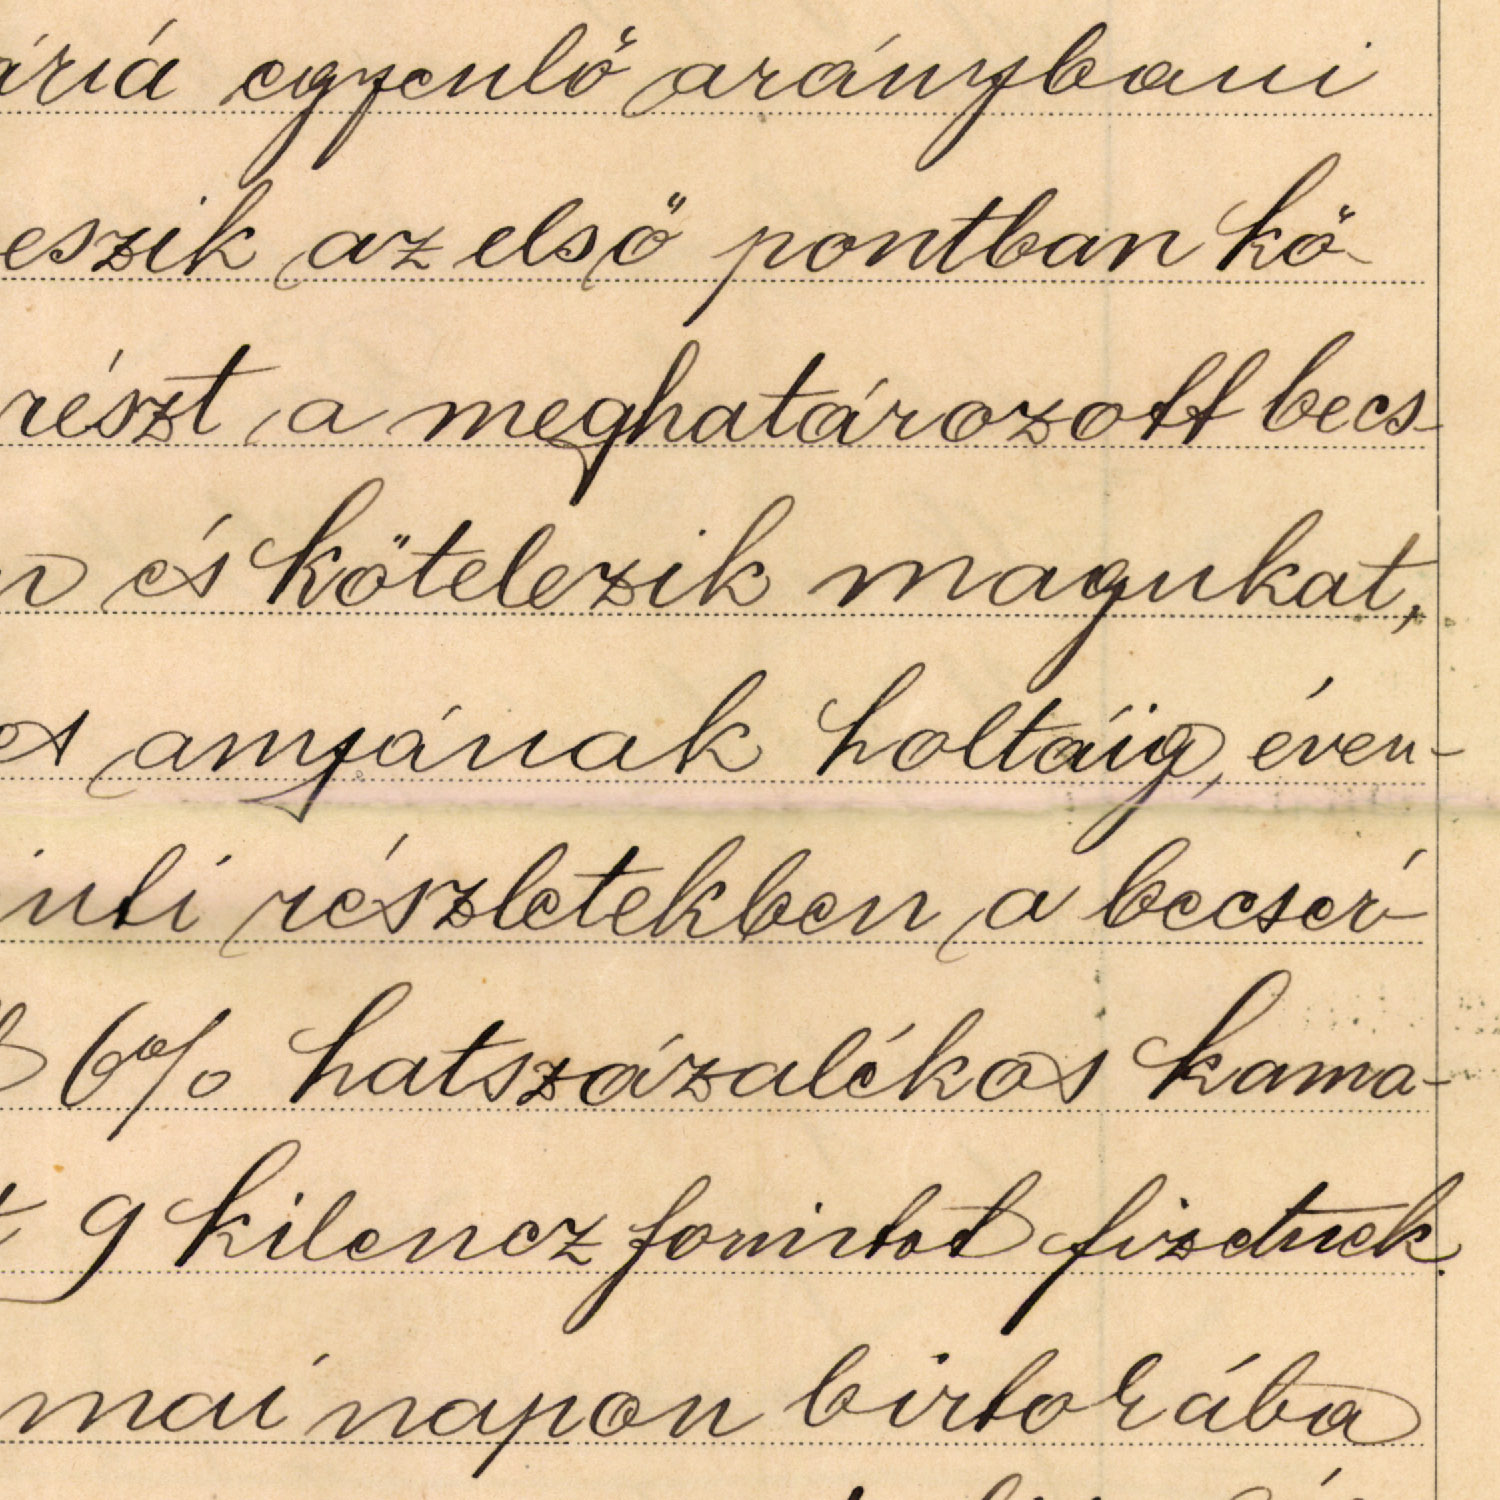 áriá egyenlő aránybani
eszik az első pontban kö-
részt a meghatározott becs-
és kötelezik magukat,
anyjának holtáig, éven-
inti részletekben a becsér-
6% hatszázalékos kama-
9 kilencz forintot fizetnek.
mai napon birtokába